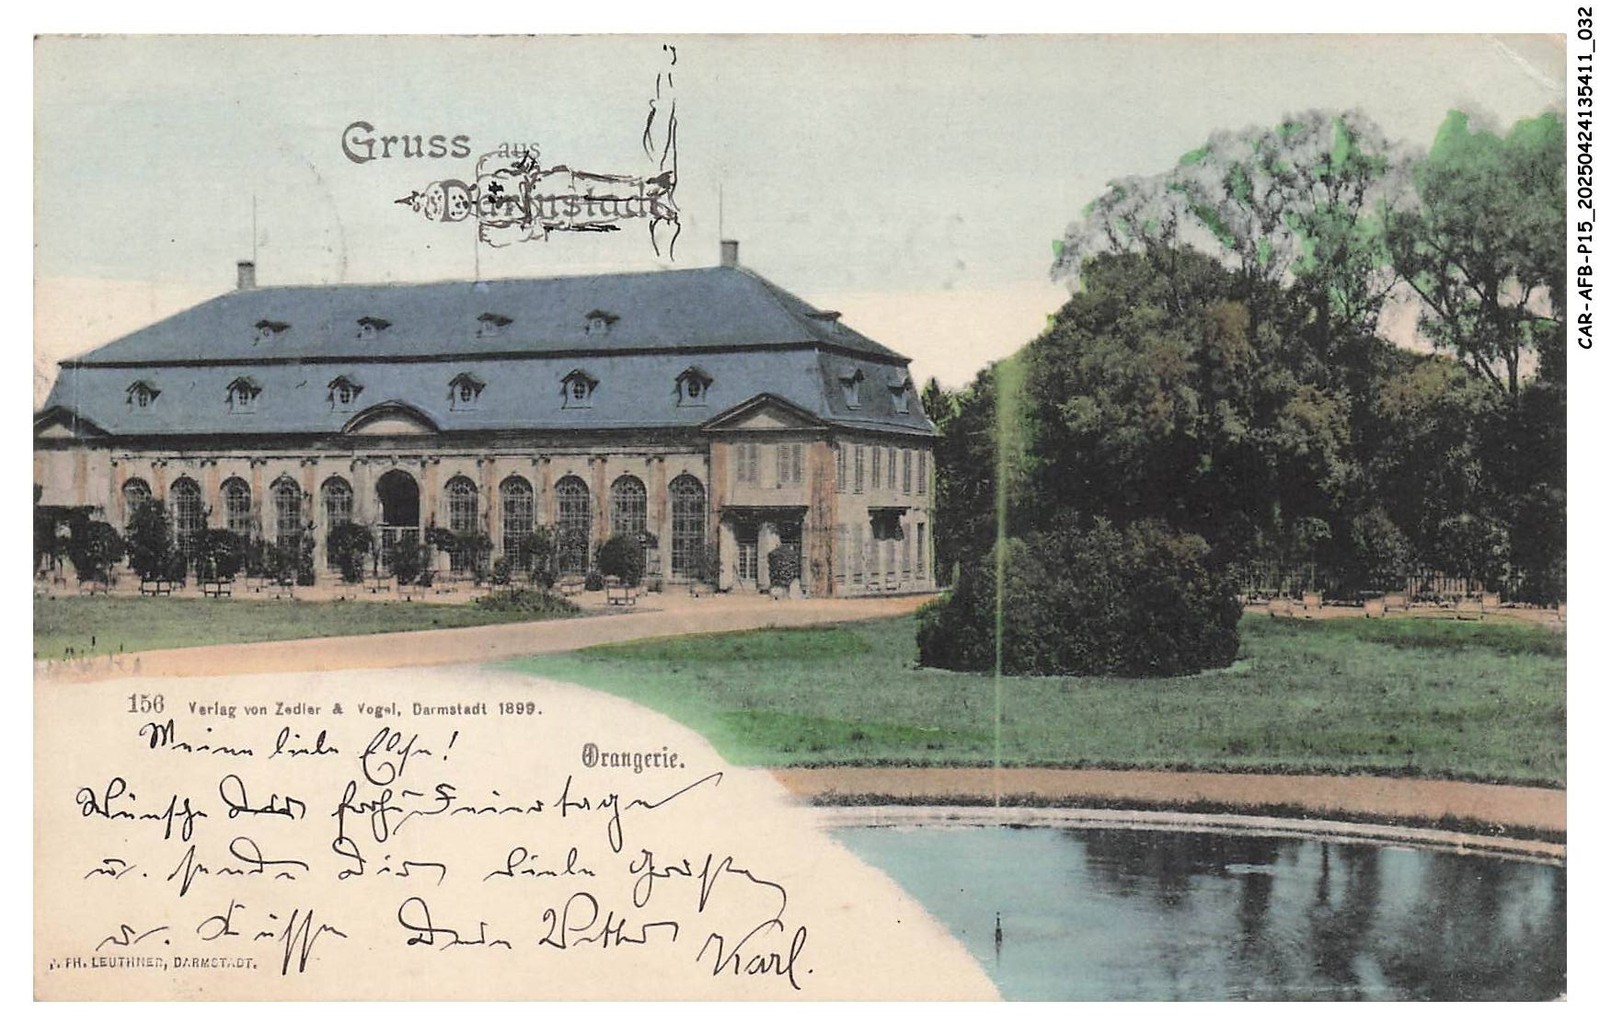 Gruss aus
Darmstadt
156 Verlag von Zedler & Vogel, Darmstadt 1899.
Orangerie.
Meine liebe Else!
Wünsche Dir frohe Feiertage
u. sende Dir viele Grüße
u. Küsse Dein Vetter
Karl.
J. PH. LEUTHNER, DARMSTADT.
CAR-AFB-P15_20250424135411_032